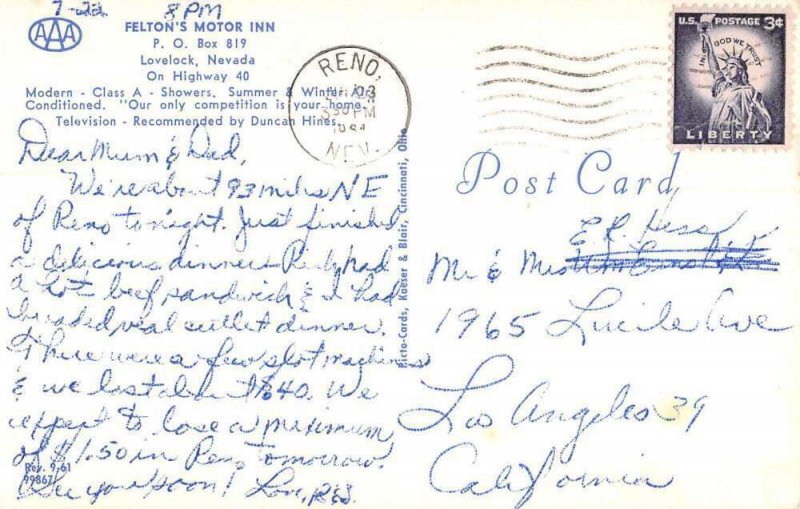 7-22 8 PM
AAA
FELTON'S MOTOR INN
P. O. Box 819
Lovelock, Nevada
On Highway 40
Modern - Class A - Showers, Summer & Winter Air
Conditioned. "Our only competition is your home."
Television - Recommended by Duncan Hines.
Dear Mum & Dad,
We're about 93 miles NE
of Reno tonight. Just finished
a delicious dinner. had
a hot beef sandwich & I had
breaded veal cutlet dinner.
There were a few slot machines
& we lost about 40. We
expect to lose a maximum
of $1.50 in Reno tomorrow.
See you soon! Love, R&J.
Rev. 9-61
99867
Picto-Cards, Kaeser & Blair, Cincinnati, Ohio
RENO,
23
30 PM
NEV.
U.S. POSTAGE 3¢
IN GOD WE TRUST
LIBERTY
Post Card
E R Hess
Mr & Mrs
1965 Lucile Ave
Los Angeles 39
California